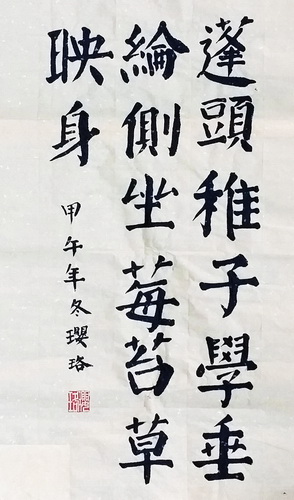 蓬頭稚子學垂
綸側坐莓苔草
映身
甲午年冬瓔珞